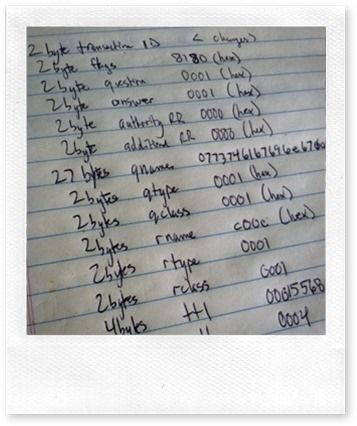 2 byte transaction ID (changes)
2 byte flags 8180 (hex)
2 byte question 0001 (hex)
2 byte answer 0001 (hex)
2 byte authority RR 0000 (hex)
2 byte additional RR 0000 (hex)
27 bytes qname
2 bytes qtype 0001 (hex)
2 bytes qclass 0001 (hex)
2 bytes rname c00c (hex)
2 bytes rtype 0001
2 bytes rclass 0001
4 bytes ttl 00015568
0004